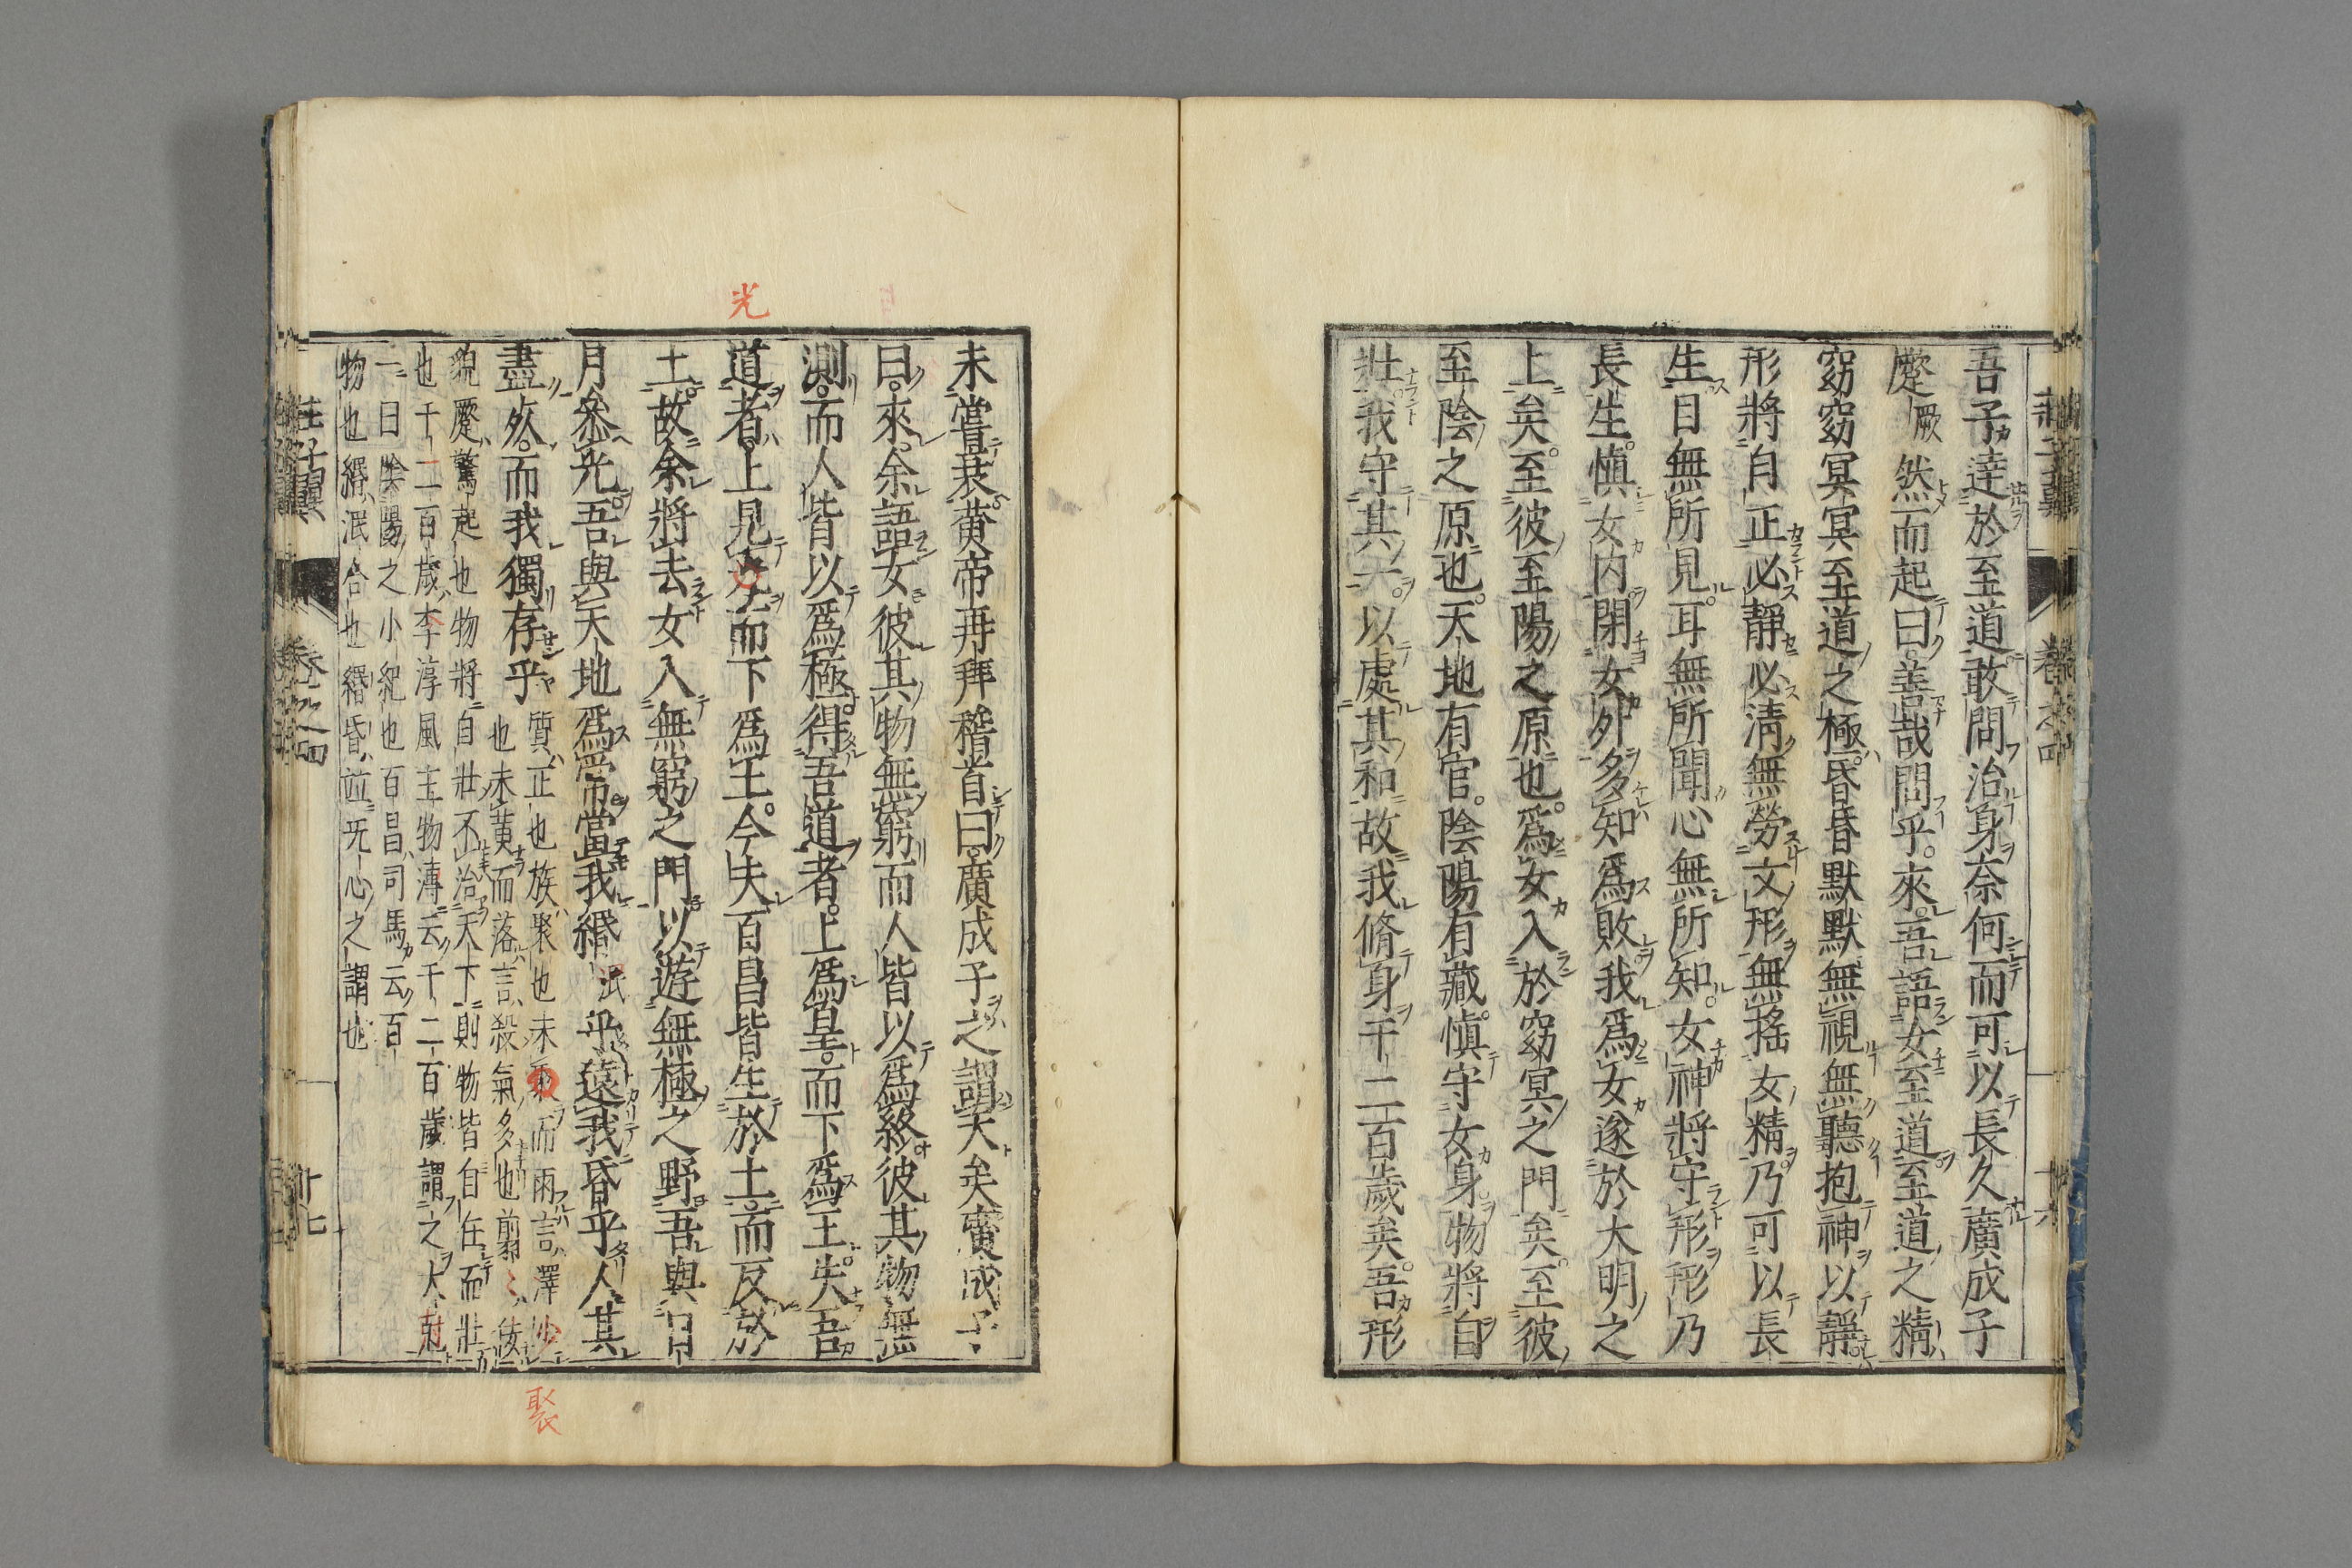 吾子達於至道敢問治身奈何而可以長久廣成子
蹷厥然而起曰善哉問乎來吾語女至道至道之精
窈窈冥冥至道之極昏昏默默無視無聽抱神以靜
形將自正必靜必淸無勞女形無搖女精乃可以長
生目無所見耳無所聞心無所知女神將守形形乃
長生愼女內閉女外多知爲敗我爲女遂於大明之
上矣至彼至陽之原也爲女入於窈冥之門矣至彼
至陰之原也天地有官陰陽有藏愼守女身物將自
壯我守其一以處其和故我脩身千二百歲矣吾形
未嘗衰黃帝再拜稽首曰廣成子之謂天矣廣成子
曰來余語女彼其物無窮而人皆以爲終彼其物無
測而人皆以爲極得吾道者上爲皇而下爲王失吾
道者上見光而下爲土今夫百昌皆生於土而反於
土故余將去女入無窮之門以遊無極之野吾與日
月參光吾與天地爲常當我緡泯乎遠我昏乎人其
盡死而我獨存乎
質正也族聚也未聚而雨言澤少
也未黃而落言殺氣多也翦翦淺
貌蹷驚起也物將自壯不治天下則物皆自任而壯
也千二百歲李淳風主物溥云千二百歲謂之大尅
一曰陰陽之小紀也百昌司馬云百
物也緡泯合也緡昏並无心之謂也
莊子翼
卷之四
十七
光
聚